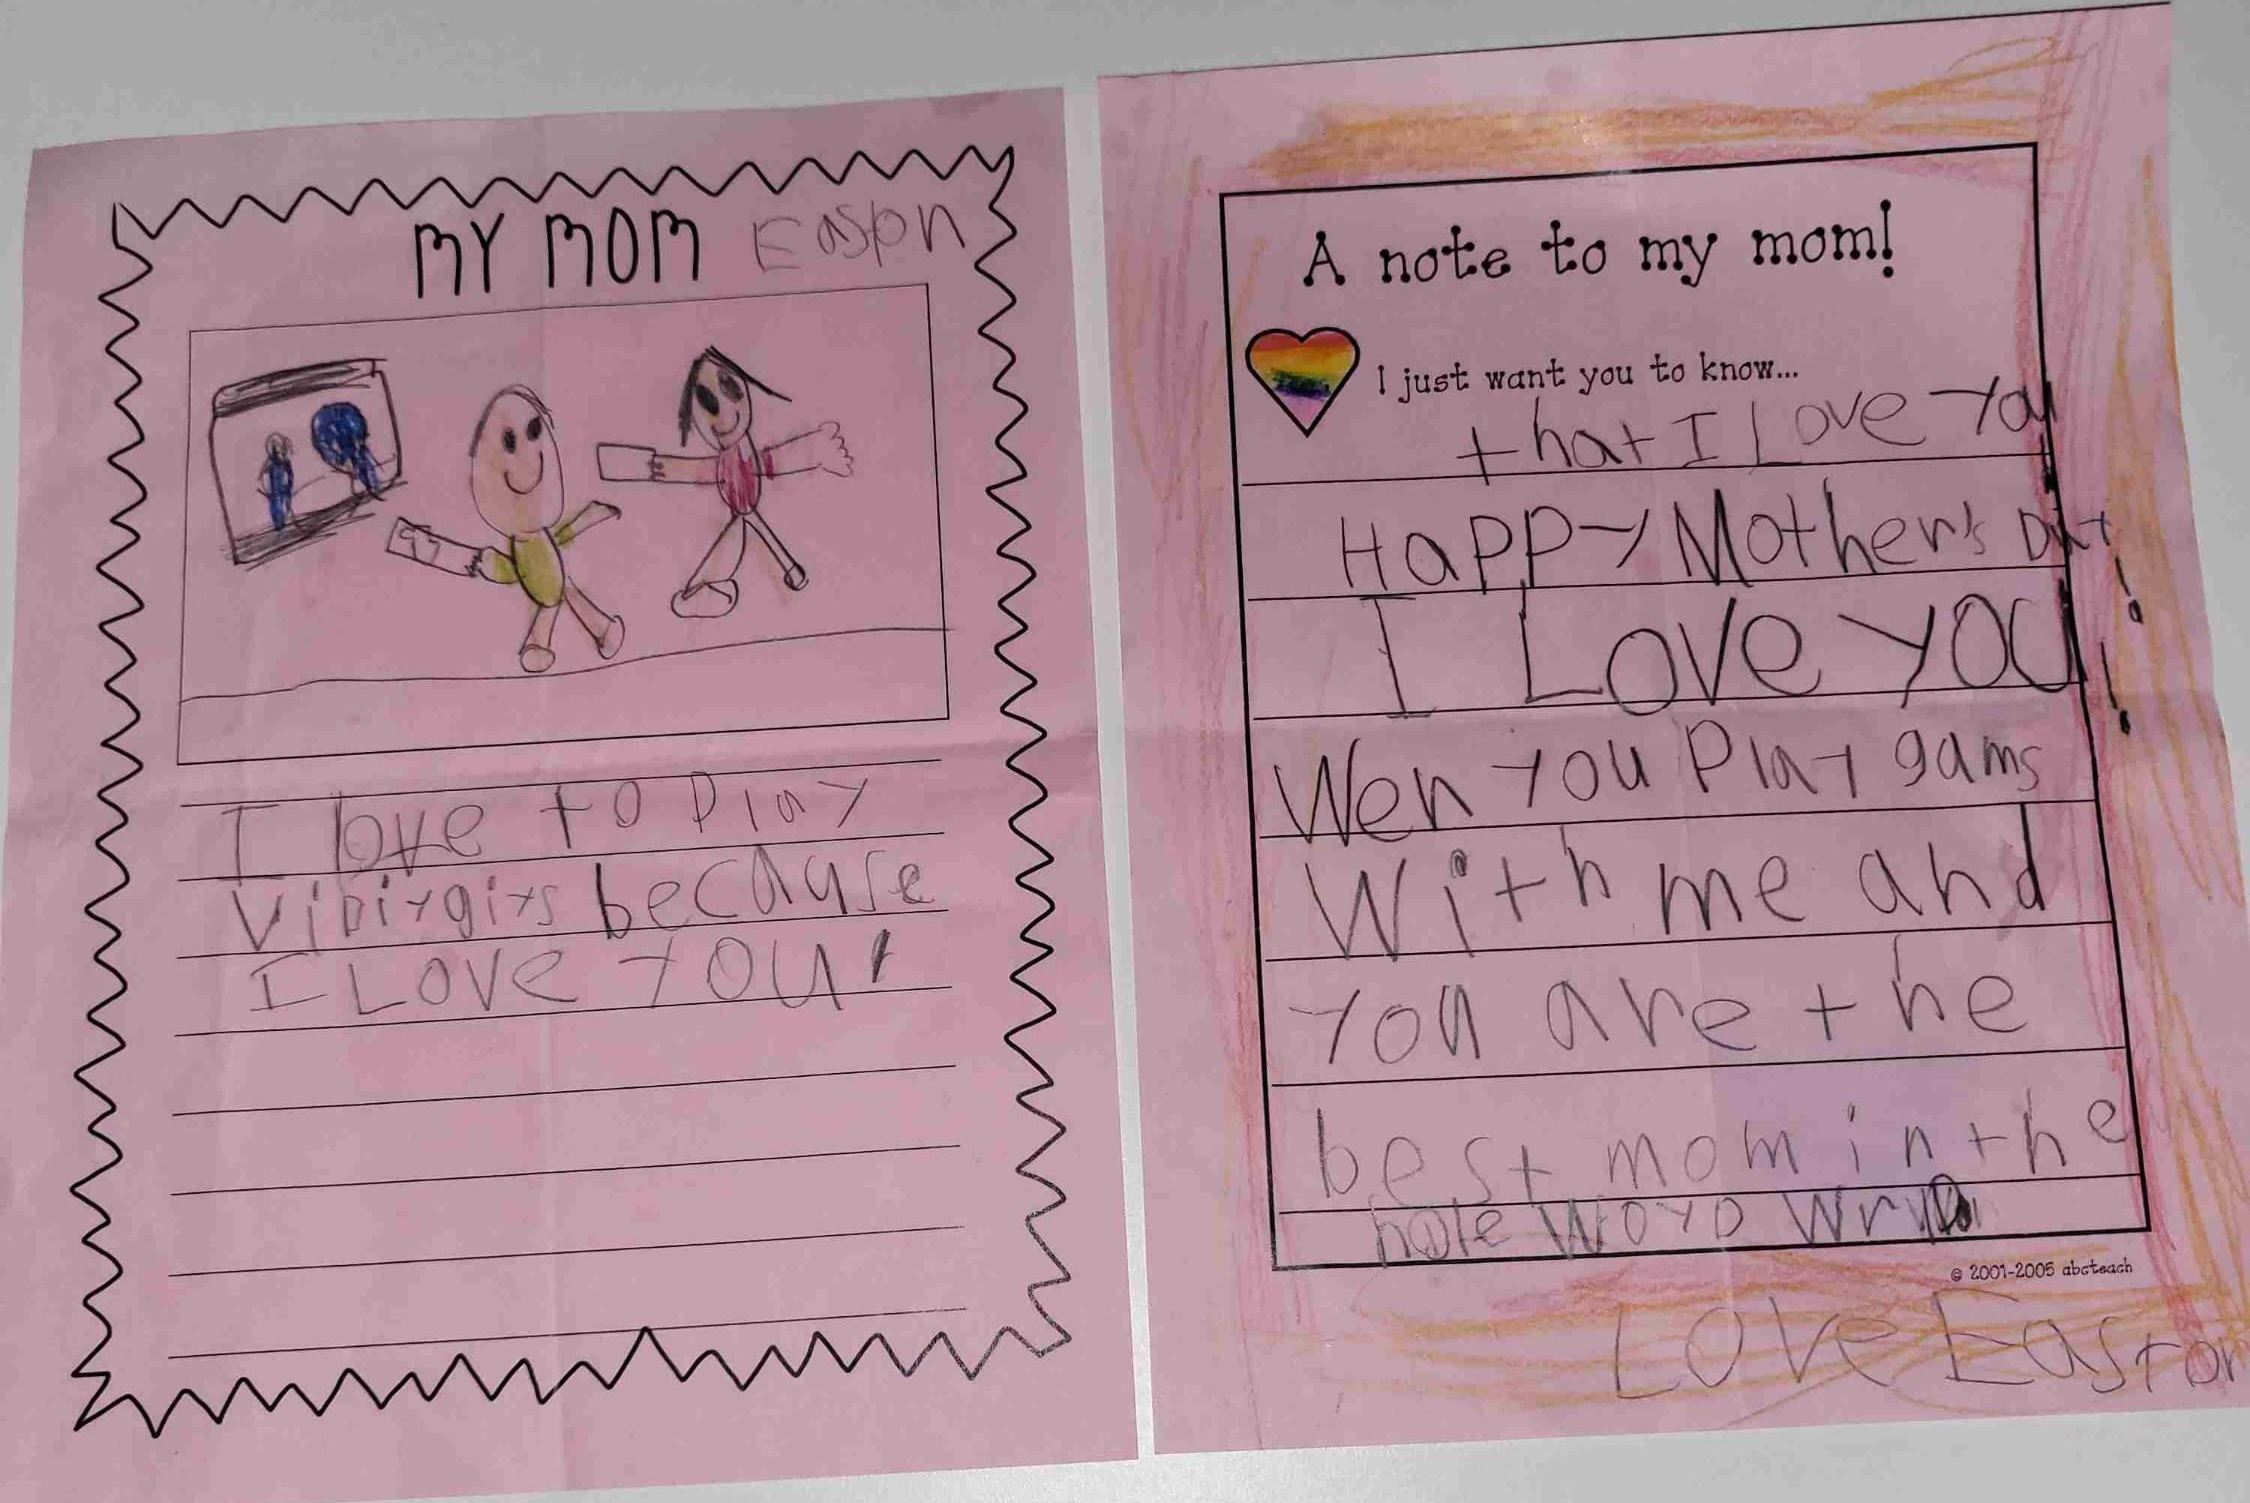 MY MOM Easpn
I love to Play
because
I Love YOU!
A note to my mom!
I just want you to know...
that I Love You
Happy Mother's DAY!
I Love YOU!
Wen you Play gams
With me and
you are the
best mom in the
hole
© 2001-2005 abcteach
Love Easton